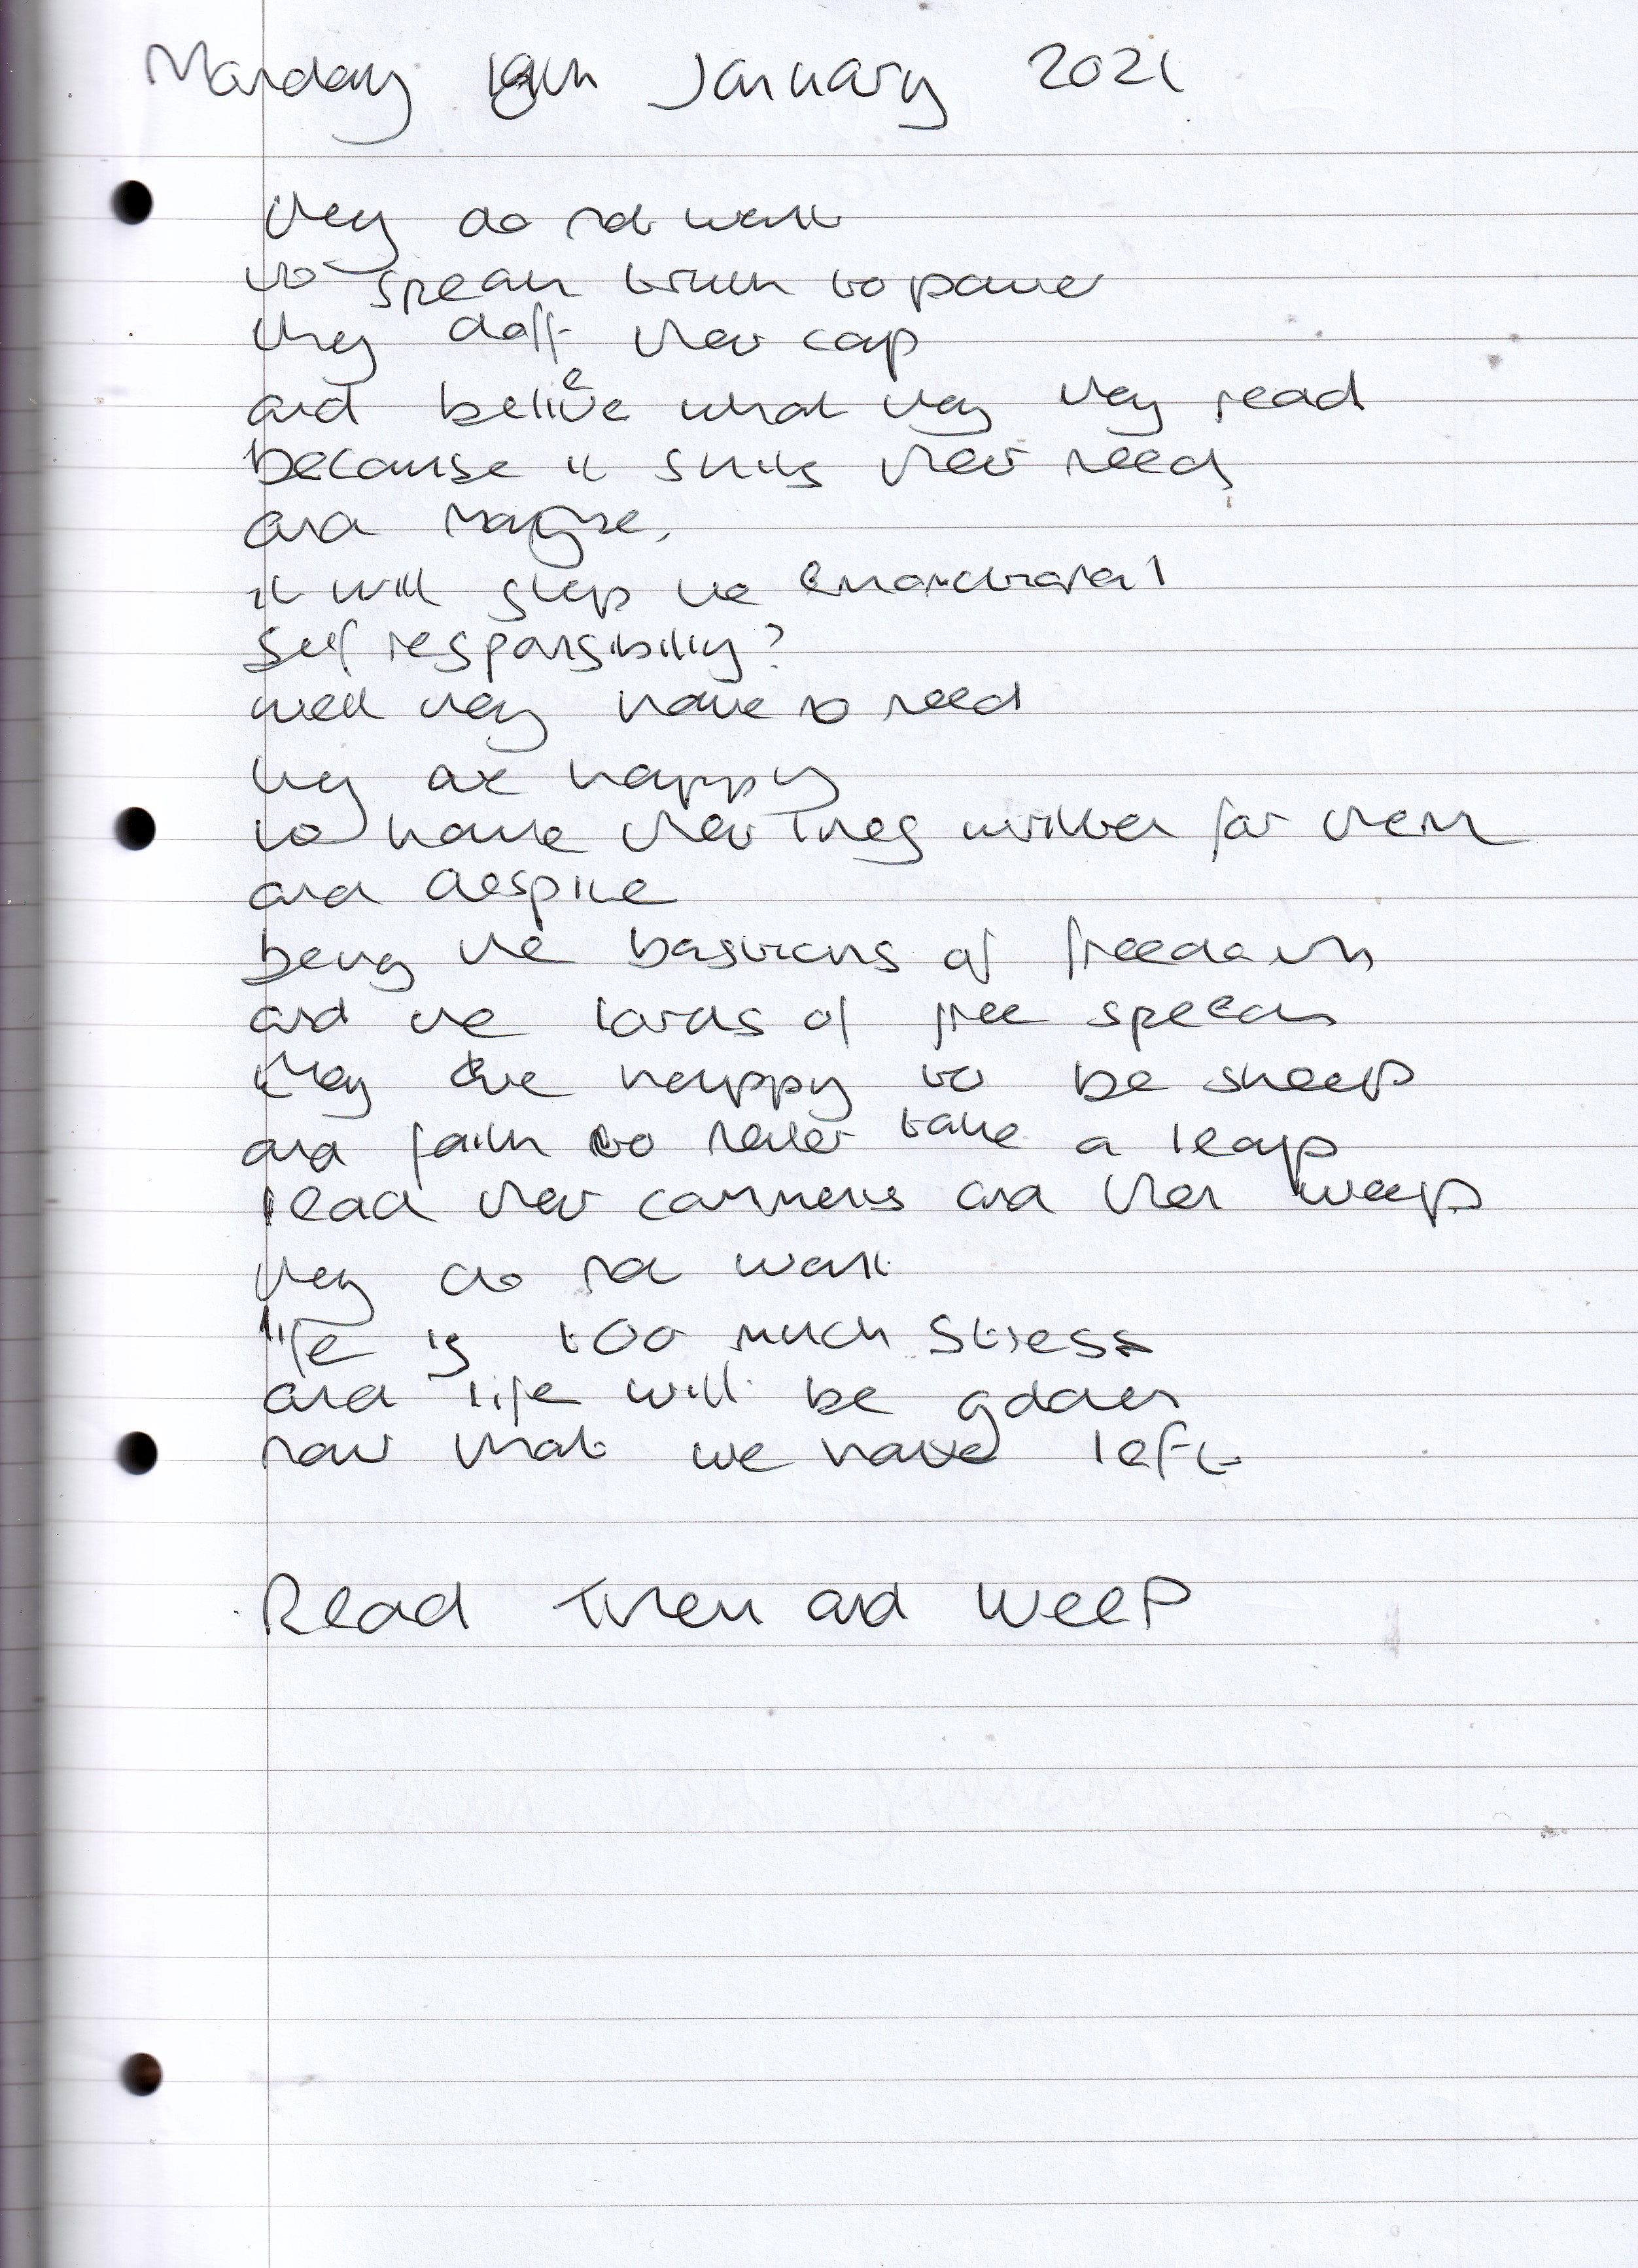 Monday 18th January 2021
they do not want
to speak truth to power
they doff their cap
and believe what they they read
because it suits their needs
and maybe,
it will stop the
self responsibility?
well they have no need
they are happy
to have their written for them
and despite
being the bastions of freedom
and the lords of free speech
they are happy to be sheep
and faith to never take a leap
read their comments and then weep
they do not want
life is too much stress
and life will be golden
now that we have left
Read Them and Weep